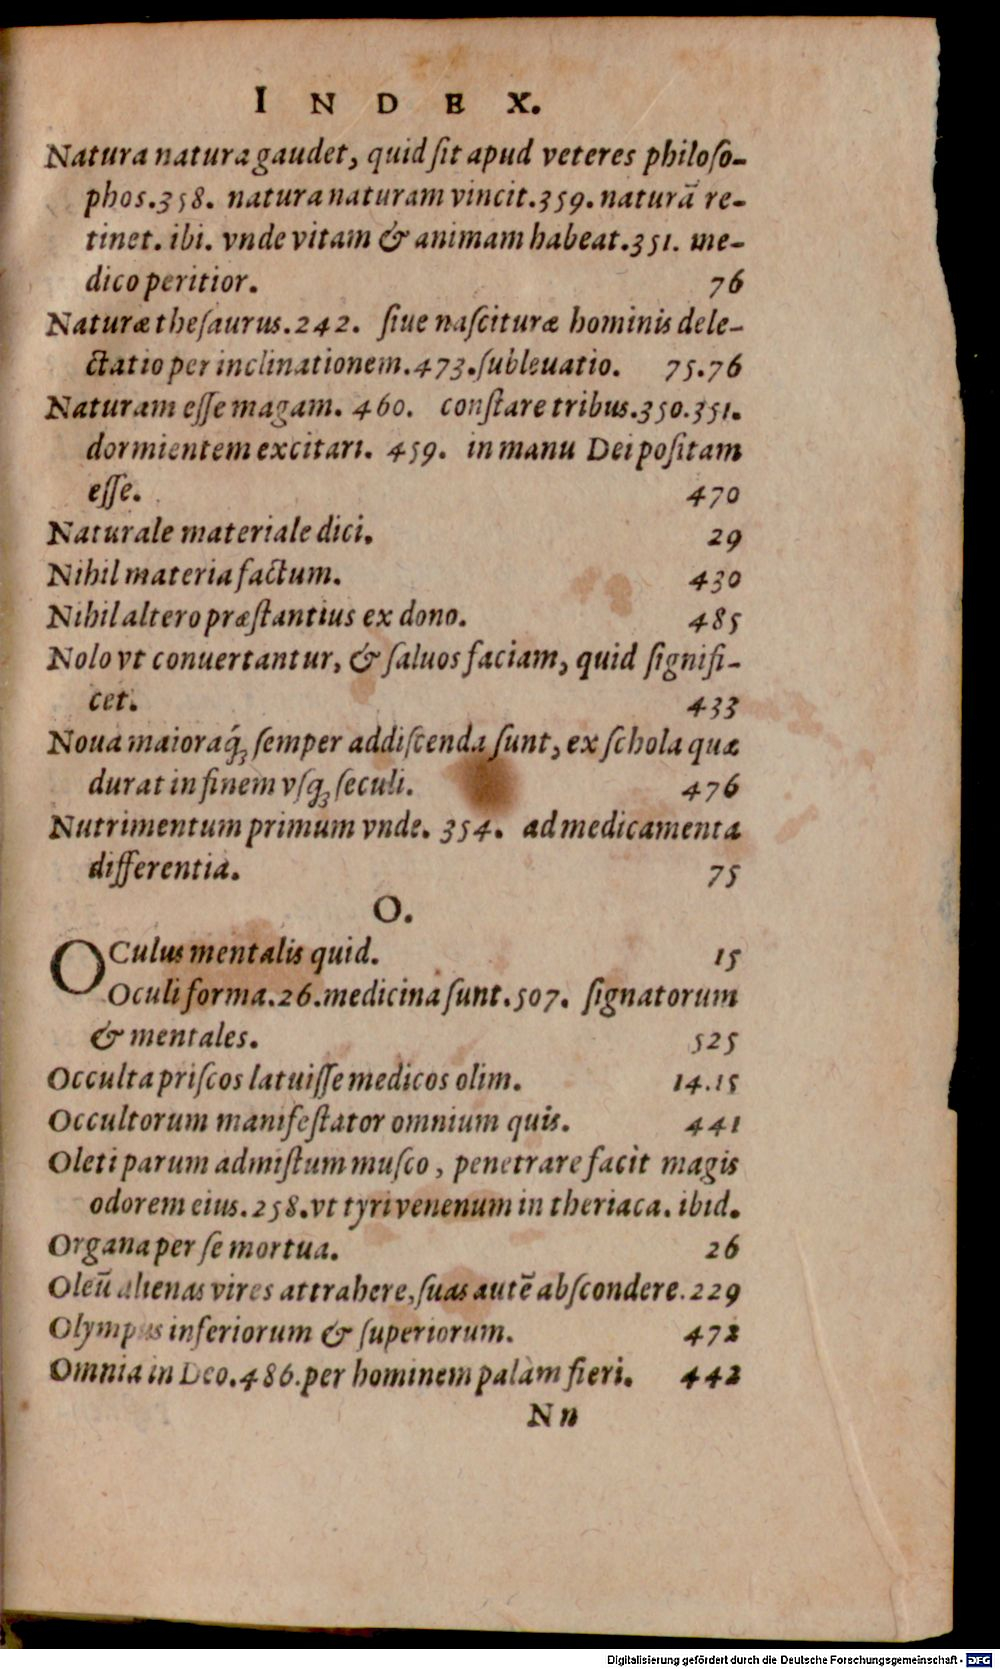 INDEX.
Natura natura gaudet, quid ſit apud veteres philoſo-
phos.358. natura naturam vincit.359. naturā re-
tinet. ibi. vnde vitam & animam habeat.351. me-
dico peritior. 76
Naturæ theſaurus.242. ſiue naſcituræ hominis dele-
ctatio per inclinationem.473.ſubleuatio. 75.76
Naturam eſſe magam. 460. conſtare tribus.350.351.
dormientem excitari. 459. in manu Dei poſitam
eſſe. 470
Naturale materiale dici. 29
Nihil materia factum. 430
Nihil altero præſtantius ex dono. 485
Nolo vt conuertantur, & ſaluos faciam, quid ſignifi-
cet. 433
Noua maioraq́; ſemper addiſcenda ſunt, ex ſchola quæ
durat in finem vſq; ſeculi. 476
Nutrimentum primum vnde. 354. ad medicamenta
differentia. 75
O.
OCulus mentalis quid. 15
Oculi forma.26.medicina ſunt.507. ſignatorum
& mentales. 525
Occulta priſcos latuiſſe medicos olim. 14.15
Occultorum manifeſtator omnium quis. 441
Oleti parum admiſtum muſco, penetrare facit magis
odorem eius.258.vt tyri venenum in theriaca. ibid.
Organa per ſe mortua. 26
Oleū alienas vires attrahere,ſuas autē abſcondere.229
Olympus inferiorum & ſuperiorum. 472
Omnia in Deo.486.per hominem palàm fieri. 442
Nn
Digitalisierung gefördert durch die Deutsche Forschungsgemeinschaft - DFG